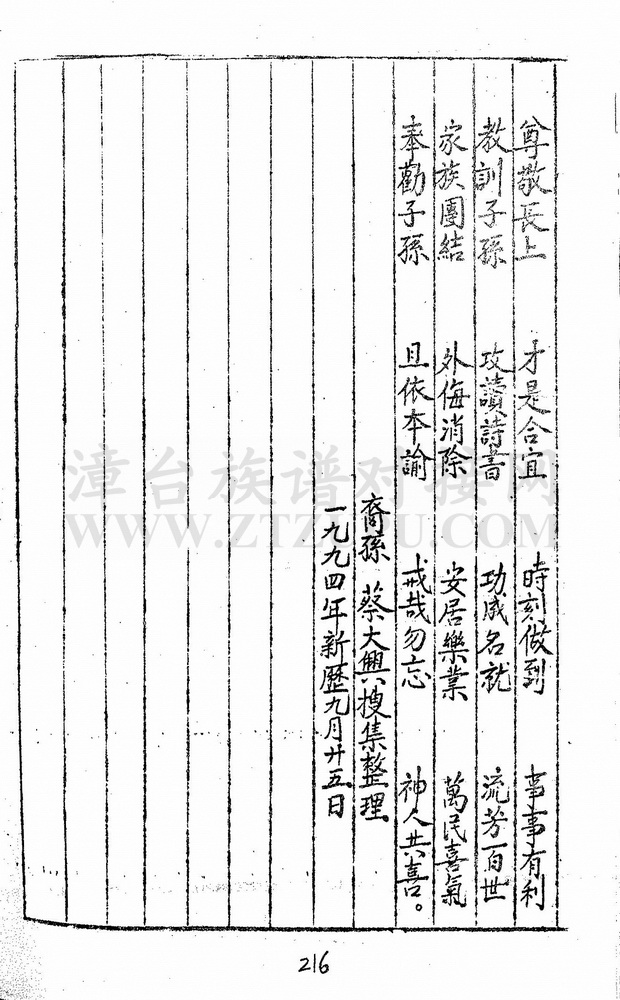 尊敬長上 才是合宜 時刻做到 事事有利
教訓子孫 攻讀詩書 功成名就 流芳百世
家族團結 外侮消除 安居樂業 萬民喜氣
奉勸子孫 且依本諭 戒哉勿忘 神人共喜。
裔孫 蔡大興搜集整理
一九九四年新歷九月廿五日
漳台族谱对接网
WWW.ZTZUPU.COM
216